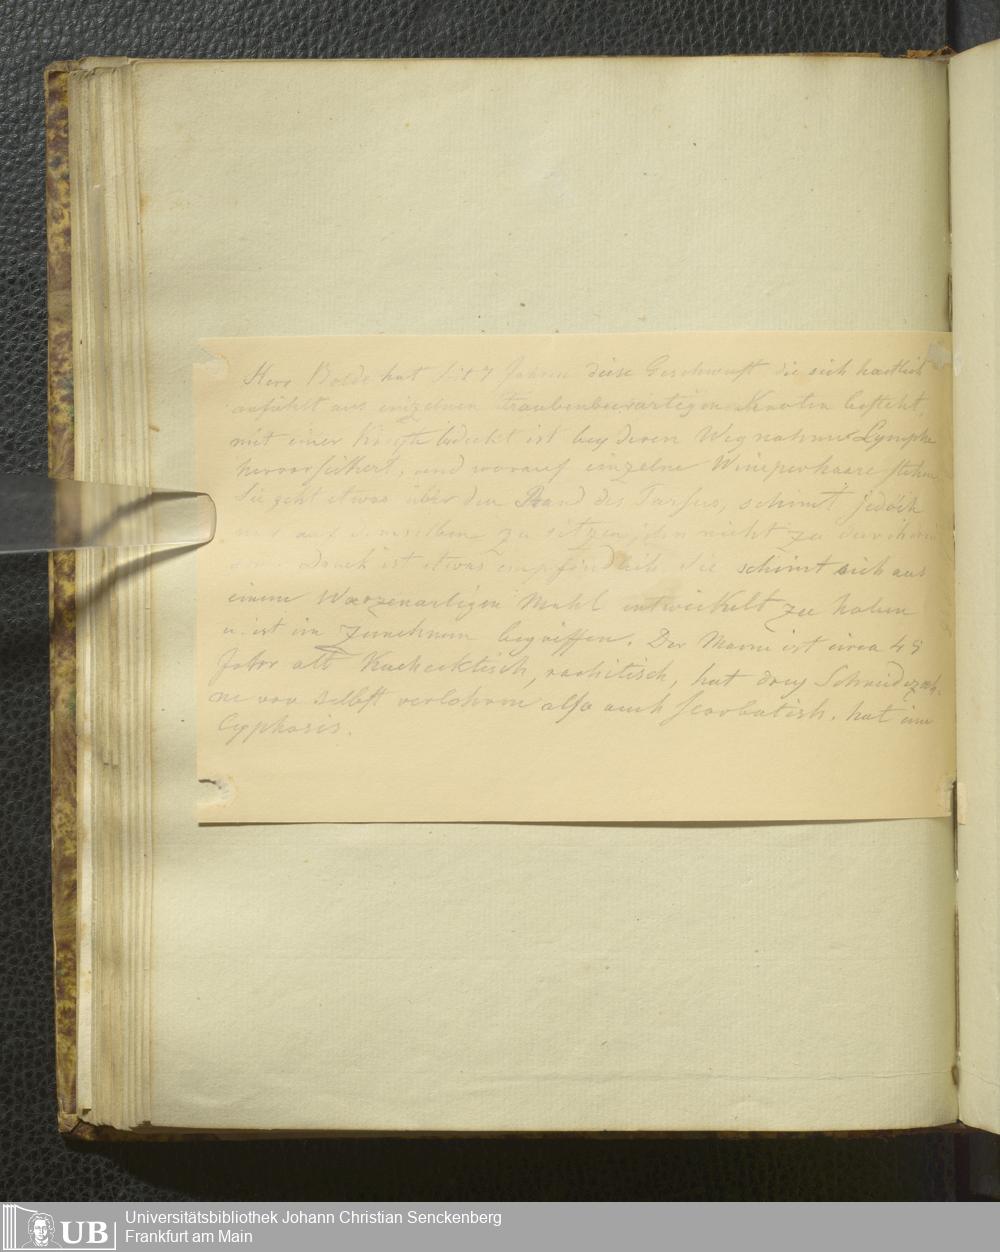 Herr Bolde hat seit 7 Jahren diese Geschwulst die sich haertlich
anfühlt aus einzelnen traubenbeerartigen Knoten besteht,
mit einer Kruste bedeckt ist bey deren Wegnahme Lymphe
hervorsikert, und worauf einzelne Wimperhaare stehen
Sie geht etwas über den Rand des Tarsus, scheint jedoch
nur auf demselben zu sitzen, ihn nicht zu
Druck ist etwas empfindlich. Sie scheint sich aus
einem Warzenartigen Mahl entwickelt zu haben
u. ist im Zunehmen begriffen. Der Mann ist circa 45
Jahr alt Kachecktisch, rachitisch, hat drey Schneidezäh-
ne von selbst verlohren also auch scorbutisch. hat eine
Cyphosis.
UB
Universitätsbibliothek Johann Christian Senckenberg
Frankfurt am Main